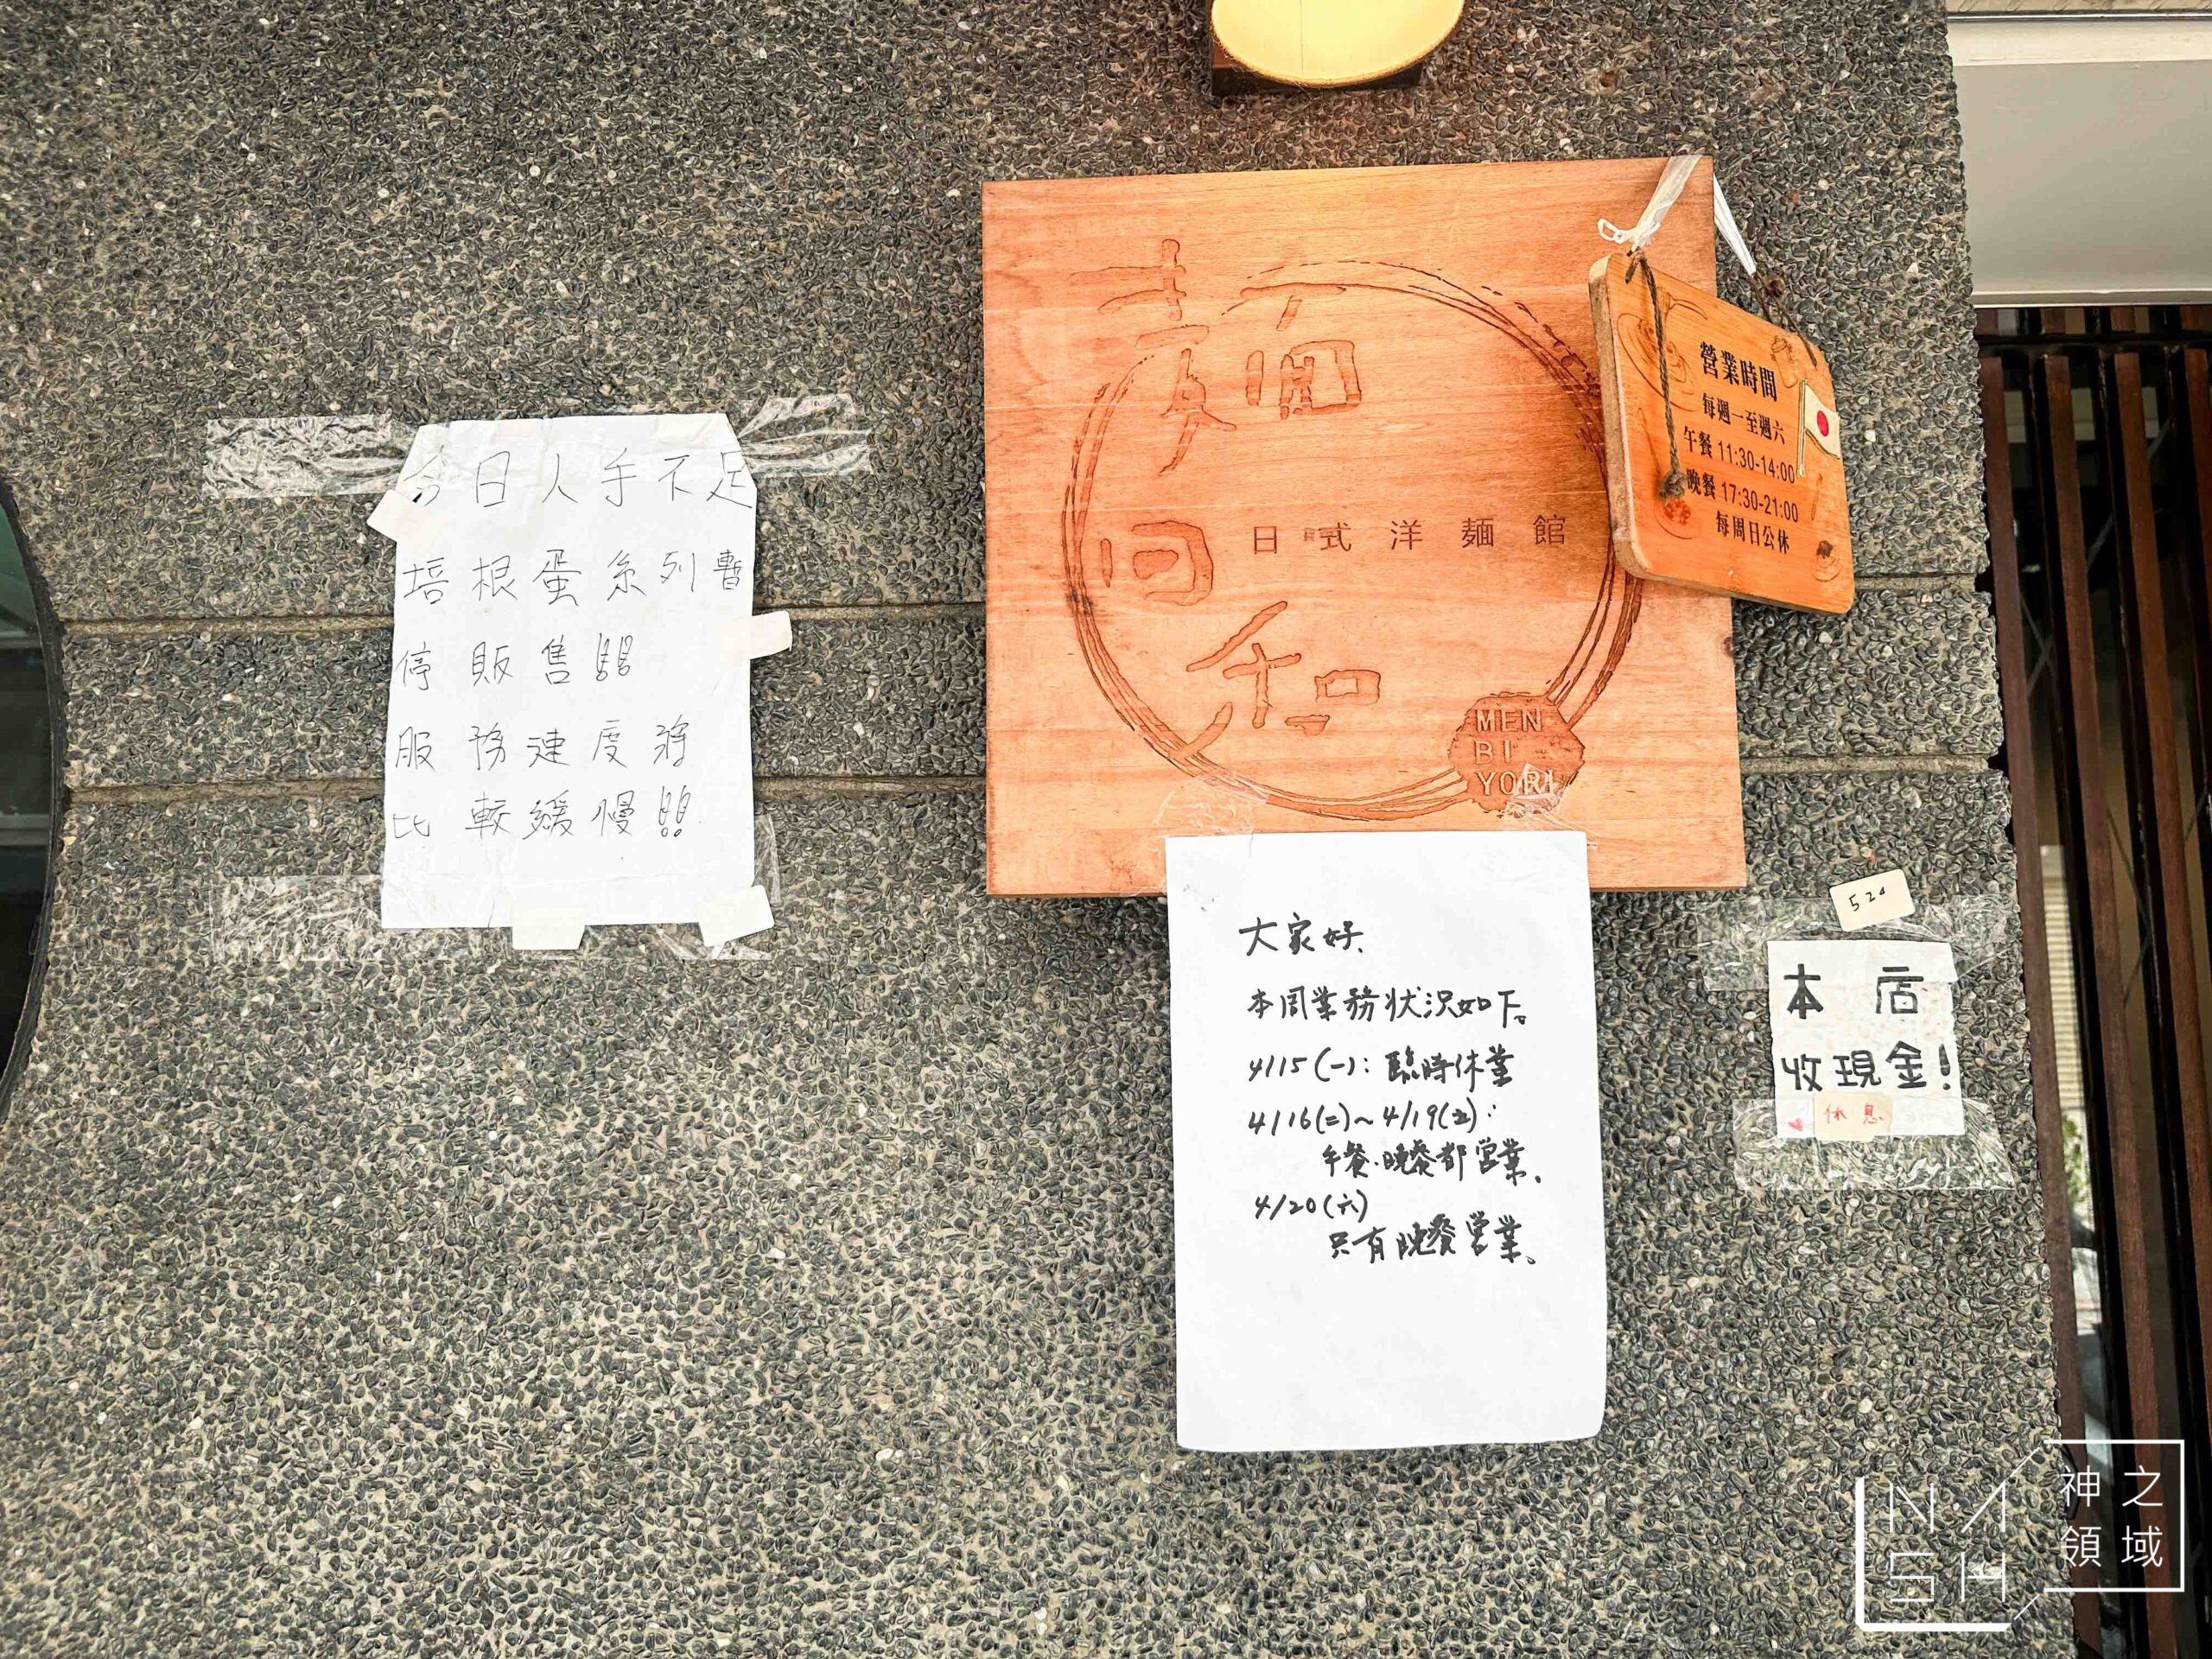 今日人手不足
培根蛋系列暫
停販售!!!
服務速度將
比較緩慢!!
麵日和
日式洋麵館
MEN
BI
YORI
營業時間
每週一至週六
午餐 11:30-14:00
晚餐 17:30-21:00
每周日公休
大家好、
本周業務狀況如下。
4/15(一): 臨時休業
4/16(二)~4/19(五):
午餐、晚餐都営業。
4/20(六)
只有晚餐営業。
本店
收現金!
休息
NASH
神之
領域